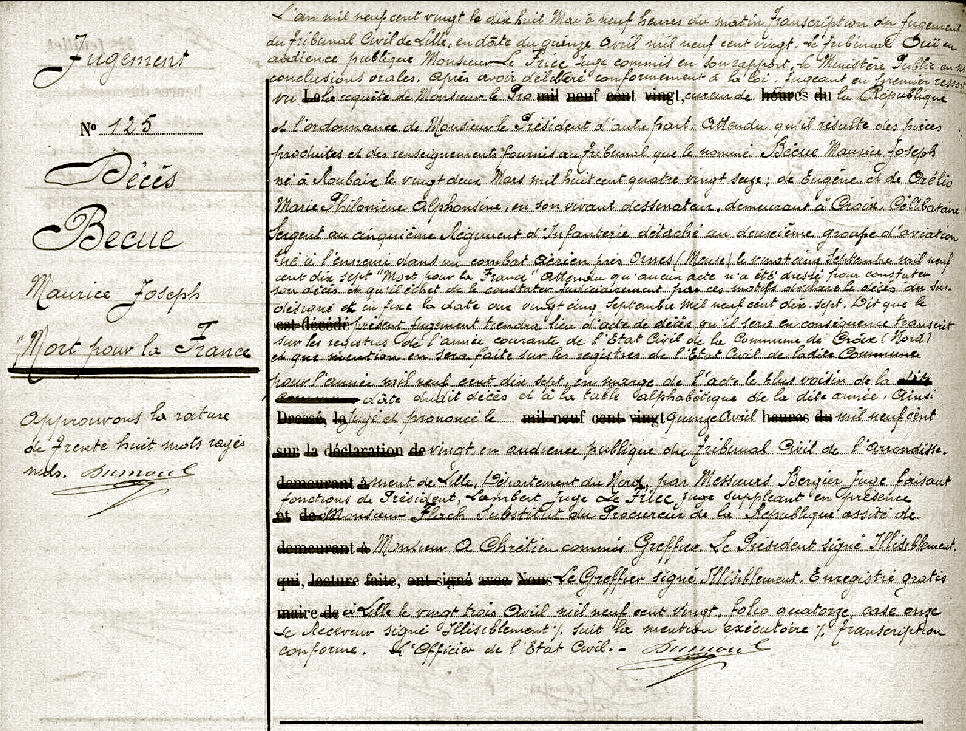 Jugement
N° 125
Décès
Becue
Maurice Joseph
"Mort pour la France"
Approuvons la rature
de trente huit mots rayés
nuls. Dumoul
L'an mil neuf cent vingt le dix huit Mai à neuf heures du matin Transcription du Jugement
du Tribunal Civil de Lille, en date du quinze Avril mil neuf cent vingt. Le Tribunal Ouï en
audience publique Monsieur Le Juge commis en son rapport, le Ministère Public en ses
conclusions orales. Après avoir délibéré conformément à la loi. Jugeant en premier ressort
vu la requête de Monsieur le Pro mil neuf cent vingt, cureur de heures du la République
et l'ordonnance de Monsieur le Président d'autre part. Attendu qu'il résulte des pièces
produites et des renseignements fournis au Tribunal que le nommé Bécue Maurice Joseph
né à Roubaix le vingt deux Mars mil huit cent quatre vingt seize, de Eugène et de
Marie Philomène Alphonsine, en son vivant dessinateur, demeurant à Croix, Célibataire
Sergent au cinquième Régiment d'Infanterie détaché au deuxième groupe d'aviation
tué à l'ennemi dans un combat aérien par Ornes (Meuse) le vingt cinq Septembre mil neuf
cent dix sept "Mort pour la France" Attendu qu'aucun acte n'a été dressé pour constater
son décès et qu'il échet de le constater judiciairement par ces motifs déclare le décès du sus-
désigné et en fixe la date au vingt cinq Septembre mil neuf cent dix sept. Dit que le
est décédé présent jugement tiendra lieu d'acte de décès qu'il sera en conséquence transcrit
sur les registres de l'année courante de l'Etat Civil de la Commune de Croix (Nord)
et que mention en sera faite sur les registres de l'Etat Civil de ladite Commune
pour l'année mil neuf cent dix sept, en marge de l'acte le plus voisin de la dite
commune date dudit décès et à la table alphabétique de la dite année. Ainsi
Dressé, la jugé et prononcé le mil neuf cent vingt quinze Avril heures du mil neuf cent
sur la déclaration de vingt, en audience publique du Tribunal Civil de l'arrondisse-
demeurant à ment de Lille, Département du Nord, par Messieurs Bergier Juge faisant
fonctions de Président, Lambert Juge Le Juge suppléant en présence
et de Monsieur Flack Substitut du Procureur de la République assité de
demeurant à Monsieur A Chrétien commis Greffier. Le Président signé Illisiblement.
qui, lecture faite, ont signé avec Nous Le Greffier signé Illisiblement. Enregistré gratis
maire de Lille le vingt trois Avril mil neuf cent vingt. folio quatorze, case onze
Le Receveur signé Illisiblement /. suit la mention exécutoire /. Transcription
conforme. L'Officier de l'Etat Civil. - Dumoul